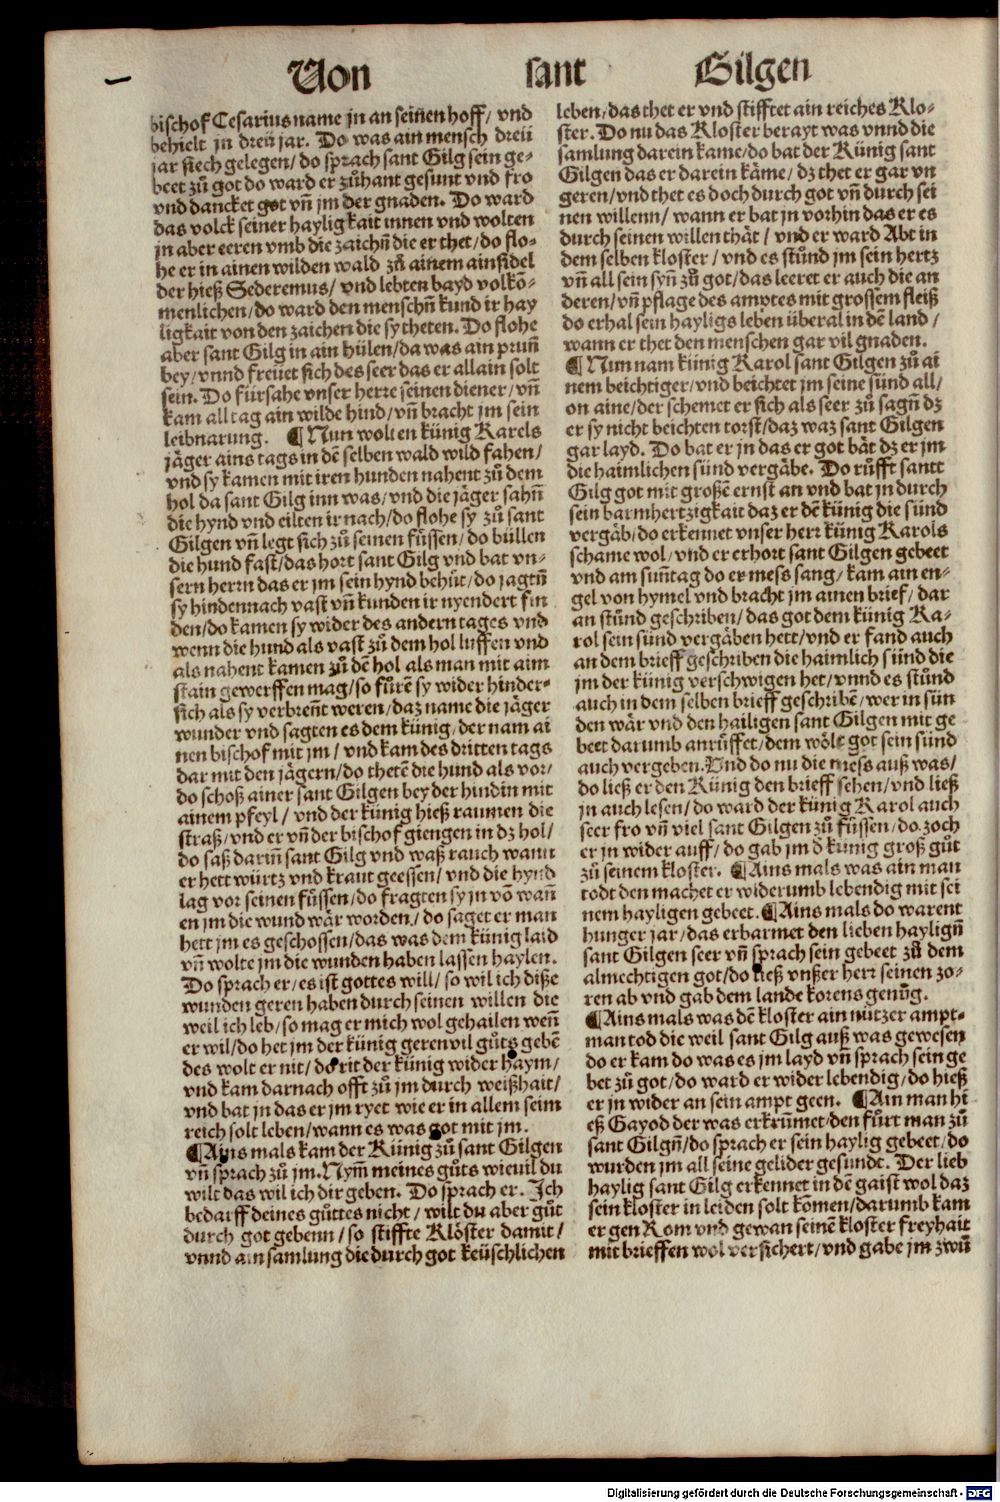 Von sant Gilgen
bischof Cesarius name jn an seinen hoff/ vnd
behielt jn dreü jar. Do was ain mensch dreü
jar siech gelegen/ do sprach sant Gilg sein ge⸗
beet zů got do ward er zůhant gesunt vnd fro
vnd dancket got vñ jm der gnaden. Do ward
das volck seiner hayligkait innen vnd wolten
jn aber eeren vmb die zaichñ die er thet/ do flo⸗
he er in ainen wilden wald zů ainem ainsidel
der hieß Sederemus/ vnd lebten bayd volkō⸗
menlichen/ do ward den menschñ kund ir hay
ligkait von den zaichen die sy theten. Do flohe
aber sant Gilg in ain hülen/ da was ain prunñ
bey/ vnnd freüet sich des seer das er allain solt
sein. Do fürsahe vnser herre seinen diener/ vñ
kam all tag ain wilde hind/ vñ bracht jm sein
leibnarung. ¶Nun wolten künig Karels
jäger ains tags in dē selben wald wild fahen/
vnd sy kamen mit iren hunden nahent zů dem
hol da sant Gilg inn was/ vnd die jäger sahñ
die hynd vnd eilten ir nach/ do flohe sy zů sant
Gilgen vñ legt sich zů seinen füssen/ do büllen
die hund fast/ das hort sant Gilg vnd bat vn⸗
sern herrn das er jm sein hynd behüt/ do jagtñ
sy hindennach vast vñ kunden ir nyendert fin
den/ do kamen sy wider des andern tages vnd
wenn die hund als vast zů dem hol luffen vnd
als nahent kamen zů dē hol als man mit aim
stain gewerffen mag/ so fůrē sy wider hinder⸗
sich als sy verbrent weren/ daz name die jäger
wunder vnd sagten es dem künig/ der nam ai
nen bischof mit jm/ vnd kam des dritten tags
dar mit den jägern/ do thetē die hund als vor/
do schoß ainer sant Gilgen bey der hindin mit
ainem pfeyl/ vnd der künig hieß raumen die
straß/ vnd er vñ der bischof giengen in dz hol/
do saß dariñ sant Gilg vnd waß rauch wann
er hett würtz vnd kraut geessen/ vnd die hynd
lag vor seinen füssen/ do fragten sy jn vō wañ
en jm die wund wär worden/ do saget er man
hett jm es geschossen/ das was dem künig laid
vñ wolte jm die wunden haben lassen haylen.
Do sprach er/ es ist gottes will/ so wil ich diße
wunden geren haben durch seinen willen die
weil ich leb/ so mag er mich wol gehailen weñ
er wil/ do het jm der künig geren vil gůts gebē
des wolt er nit/ do rit der künig wider haym/
vnd kam darnach offt zů jm durch weißhait/
vnd bat jn das er jm ryet wie er in allem seim
reich solt leben/ wann es was got mit jm.
¶Ains mals kam der Künig zů sant Gilgen
vñ sprach zů jm. Nym̃ meines gůts wieuil du
wilt das wil ich dir geben. Do sprach er. Ich
bedarff deines gůttes nicht/ wilt du aber gůt
durch got gebenn/ so stiffte Klöster damit/
vnnd ain samlung die durch got keüschlichen
leben/ das thet er vnd stifftet ain reiches Klo⸗
ster. Do nu das Kloster berayt was vnnd die
samlung darein kame/ do bat der Künig sant
Gilgen das er darein käme/ dz thet er gar vn
geren/ vnd thet es doch durch got vñ durch sei
nen willenn/ wann er bat jn vorhin das er es
durch seinen willen thät/ vnd er ward Abt in
dem selben kloster/ vnd es stůnd jm sein hertz
vñ all sein syñ zů got/ das leeret er auch die an
deren/ vñ pflage des amptes mit grossem fleiß
do erhal sein hayligs leben überal in dē land/
wann er thet den menschen gar vil gnaden.
¶Nun nam künig Karol sant Gilgen zů ai
nem beichtiger/ vnd beichtet jm seine sünd all/
on aine/ der schemet er sich als seer zů sagñ dz
er sy nicht beichten torst/ daz waz sant Gilgen
gar layd. Do bat er jn das er got bät dz er jm
die haimlichen sünd vergäbe. Do růfft santt
Gilg got mit großē ernst an vnd bat jn durch
sein barmhertzigkait daz er dē künig die sünd
vergäb/ do erkennet vnser herr künig Karols
schame wol/ vnd er erhort sant Gilgen gebeet
vnd am suñtag do er mess sang/ kam ain en⸗
gel von hymel vnd bracht jm ainen brief/ dar
an stůnd geschriben/ das got dem künig Ka⸗
rol sein sünd vergäben hett/ vnd er fand auch
an dem brieff geschriben die haimlich sünd die
jm der künig verschwigen het/ vnnd es stůnd
auch in dem selben brieff geschribē/ wer in sün
den wär vnd den hailigen sant Gilgen mit ge
beet darumb anrůffet/ dem wölt got sein sünd
auch vergeben. Vnd do nu die mess auß was/
do ließ er den Künig den brieff sehen/ vnd ließ
jn auch lesen/ do ward der künig Karol auch
seer fro vñ viel sant Gilgen zů füssen/ do zoch
er jn wider auff/ do gab jm d̄ künig groß gůt
zů seinem kloster. ¶Ains mals was ain man
todt den machet er widerumb lebendig mit sei
nem hayligen gebeet. ¶Ains mals do warent
hunger jar/ das erbarmet den lieben hayligñ
sant Gilgen seer vñ sprach sein gebeet zů dem
almechtigen got/ do ließ vnßer herr seinen zo⸗
ren ab vnd gab dem lande korens genůg.
¶Ains mals was dē kloster ain nützer ampt⸗
man tod die weil sant Gilg auß was gewesen
do er kam do was es jm layd vñ sprach sein ge
bet zů got/ do ward er wider lebendig/ do hieß
er jn wider an sein ampt geen. ¶Ain man hi
eß Gayod der was erkrüm̄et/ den fůrt man zů
sant Gilgñ/ do sprach er sein haylig gebeet/ do
wurden jm all seine gelider gesundt. Der lieb
haylig sant Gilg erkennet in dē gaist wol daz
sein kloster in leiden solt kōmen/ darumb kam
er gen Rom vnd gewan seinē kloster freyhait
mit brieffen wol versichert/ vnd gabe jm zwů
Digitalisierung gefördert durch die Deutsche Forschungsgemeinschaft - DFG